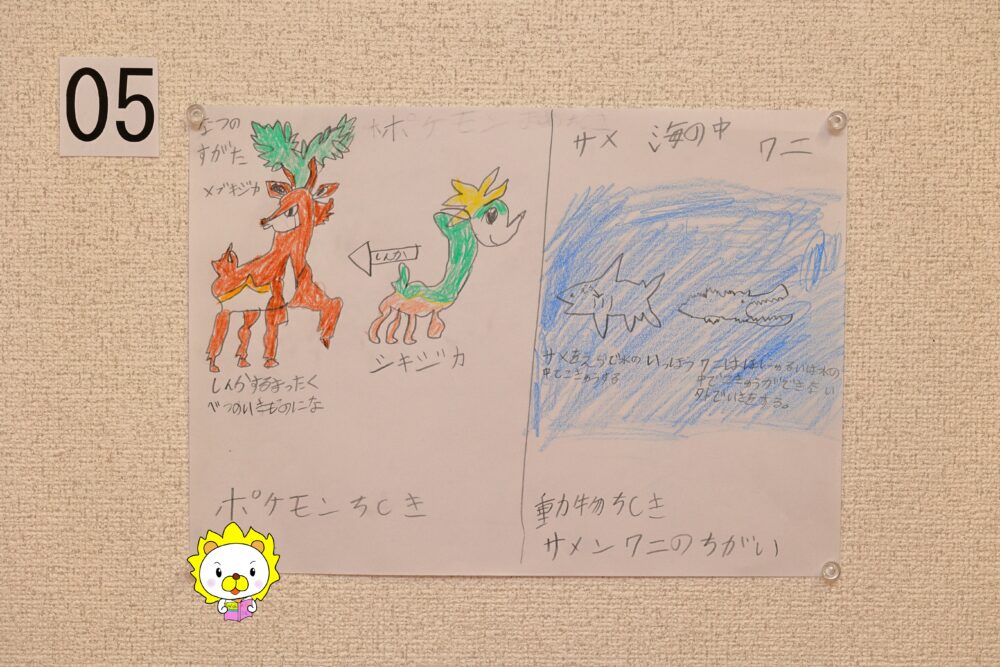 05
なつの
すがた
メブキジカ
しんか
シキジカ
しんかするまったく
べつのいきものにな
ポケモンちしき
サメ 海の中 ワニ
サメはえらで水の
中でこきゅうする
いっぽう ワニははいるいは水の
中でこきゅうができない
外でいきをする。
動物ちしき
サメとワニのちがい